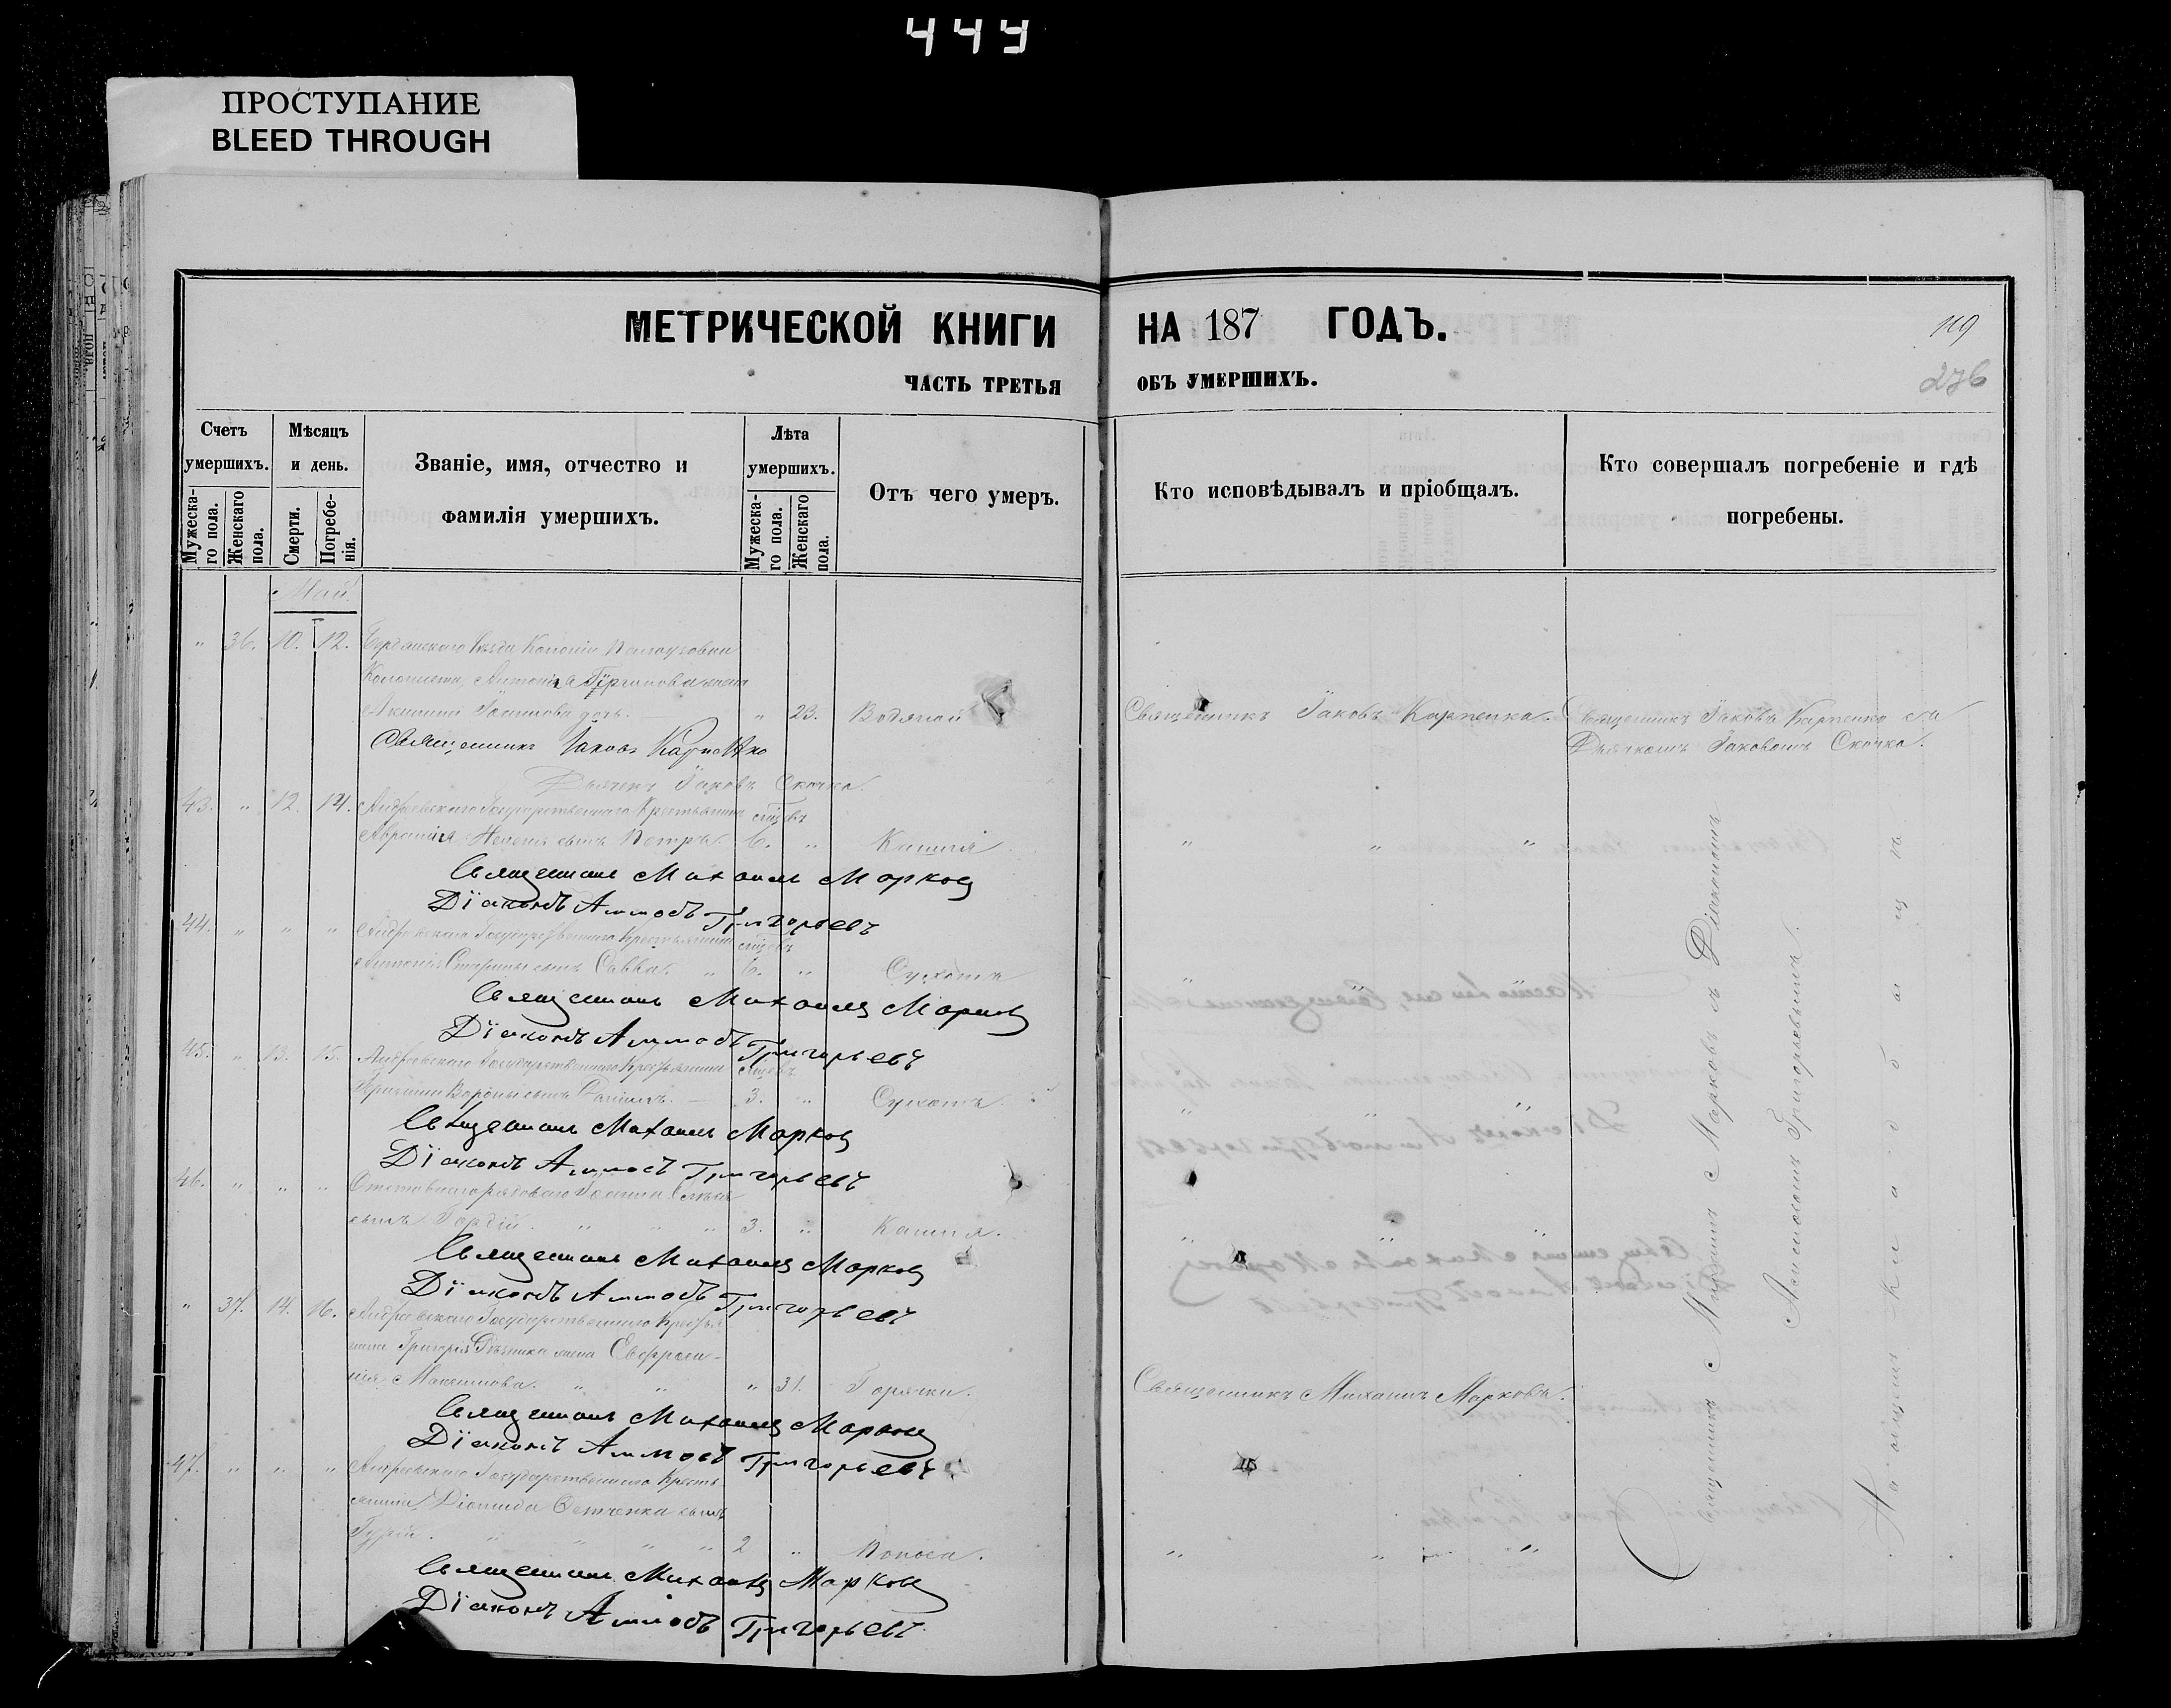 444
ПРОСТУПАНИЕ
BLEED THROUGH
МЕТРИЧЕСКОЙ КНИГИ НА 187 ГОДЪ.
119
ЧАСТЬ ТРЕТЬЯ ОБЪ УМЕРШИХЪ.
276
Счетъ умершихъ.
Мужеска-го пола.
Женскаго пола.
Мѣсяцъ и день.
Смерти.
Погребе-нія.
Званіе, имя, отчество и
фамилія умершихъ.
Лѣта умершихъ.
Мужеска-го пола.
Женскаго пола.
Отъ чего умеръ.
Кто исповѣдывалъ и пріобщалъ.
Кто совершалъ погребеніе и гдѣ
погребены.
Май
" 36. 10. 12. Бердянскаго Уѣзда Колоніи
Колониста Антонія жена
Іоаннова дочь. " 23. Водяной Священникъ Іаковъ Карпенко. Священникъ Іаковъ Карпенко съ
Священникъ Іаковъ Карпенко
Дьячкомъ Іаковомъ Скочко.
Дьячекъ Іаковъ Скочко.
43. " 12. 14. Андреевскаго Государственнаго Крестьянина
сынъ Петръ. 6. " Кашля " " "
Священникъ Михаилъ Марковъ
Діаконъ Григорьевъ
44. " " " Андреевскаго Государственнаго Крестьянина
Антонія сынъ Савва. " 6. " Сухотъ "
Священникъ Михаилъ Марковъ
Діаконъ Григорьевъ
45. " 13. 15. Андреевскаго Государственнаго Крестьянина
Вороны сынъ 3. " Сухотъ. " " "
Священникъ Михаилъ Марковъ
Діаконъ Григорьевъ
46. " " " рядоваго Іоанна
сынъ Гордій. " " " 3. " Кашля. " " "
Священникъ Михаилъ Марковъ
Діаконъ Григорьевъ
" 37. 14. 16. Андреевскаго Государственнаго Крестья
нина Григорія жена Евфросин-
ія Максимова. " " " 31. Горячки. Священникъ Михаилъ Марковъ.
Священникъ Михаилъ Марковъ
Діаконъ Григорьевъ
47. " " " Андреевскаго Государственнаго Кресть
янина сынъ
Гурій. " " " " 2 " Поноса. " " "
Священникъ Михаилъ Марковъ
Діаконъ Григорьевъ
Священникъ Михаилъ Марковъ съ Діакономъ
Григорьевымъ.
На общемъ кладбищѣ